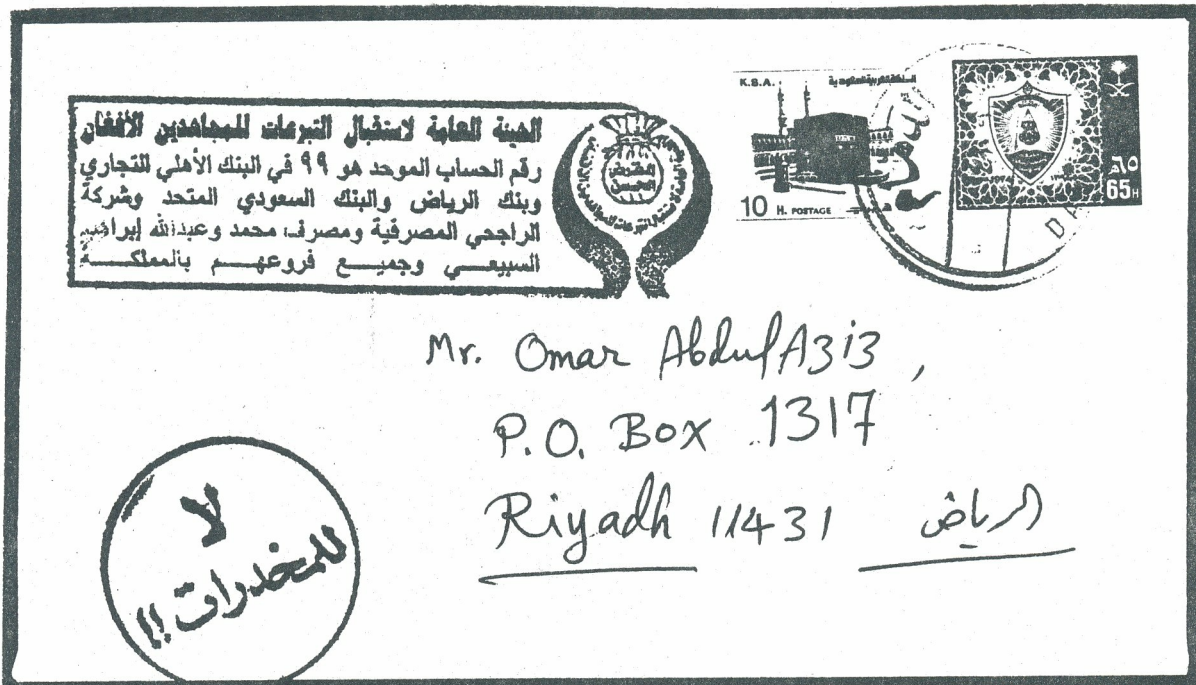 الهيئة العامة لاستقبال التبرعات للمجاهدين الأفغان
رقم الحساب الموحد هو ٩٩ في البنك الأهلي التجاري
وبنك الرياض والبنك السعودي المتحد وشركة
الراجحي المصرفية ومصرف محمد وعبدالله إبراهيم
السبيعي وجميع فروعهم بالمملكة
K.S.A.
المملكة العربية السعودية
10 H. POSTAGE
٦٥هـ
65H
Mr. Omar AbdulAziz,
P.O. Box 1317
Riyadh 11431 الرياض
لا
للمخدرات !!